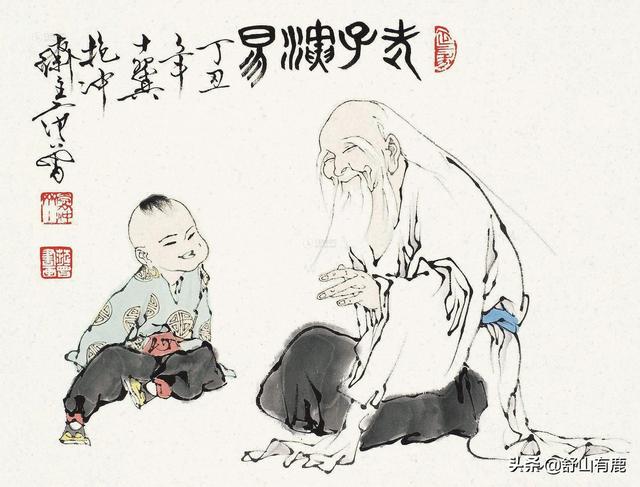 老子演易
丁丑
年
十翼
抱冲
齋主范曾
头条 @舒山有鹿